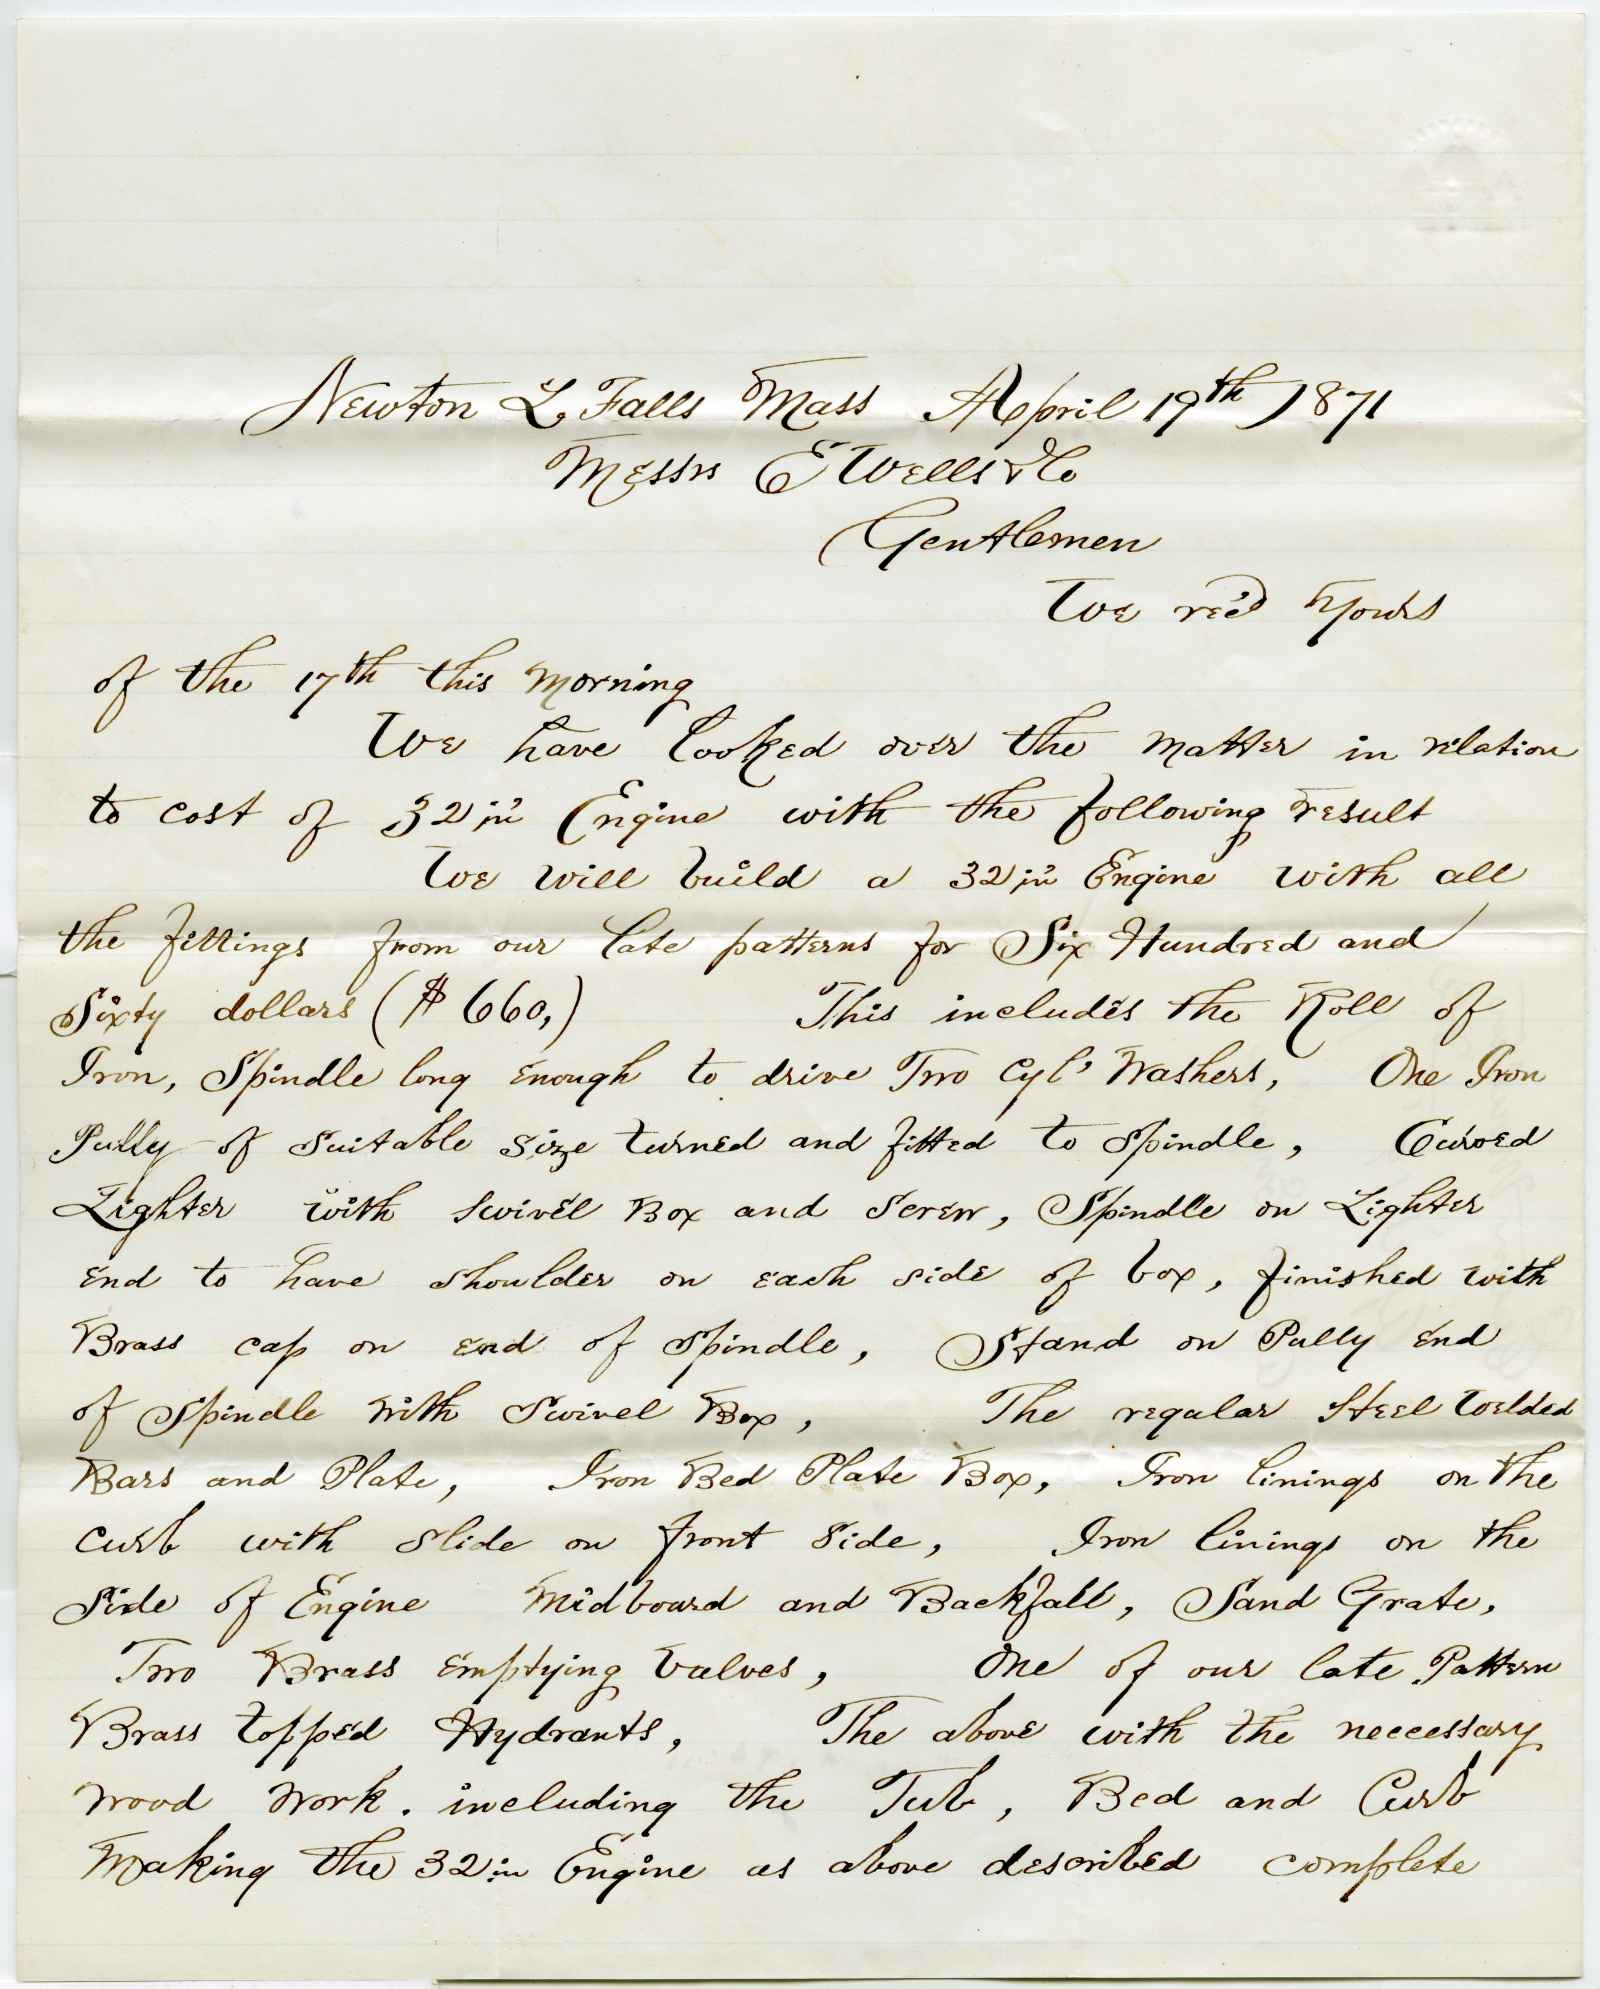 Newton L, Falls Mass April 19th 1871
Messrs E Wells & Co
Gentlemen
We rec'd Yours
of the 17th this morning
We have looked over the matter in relation
to cost of 32 in Engine with the following result
We will build a 32 in Engine with all
the fittings from our late patterns for Six Hundred and
Sixty dollars ($ 660,) This includes the Roll of
Iron, Spindle long enough to drive Two Cyl' Washers, One Iron
Pully of suitable size turned and fitted to Spindle, Curved
Lighter with swivel Box and Screw, Spindle on Lighter
end to have shoulder on each side of box, finished with
Brass cap on end of Spindle, Stand on Pully end
of Spindle with Swivel Box, The regular Steel Welded
Bars and Plate, Iron Bed Plate Box, Iron linings on the
curb with slide on front side, Iron linings on the
side of Engine Midboard and Backfall, Sand Grate,
Two Brass emptying valves, One of our late Pattern
Brass topped Hydrants, The above with the neccessary
wood work. including the Tub, Bed and Curb
Making the 32 in Engine as above described complete